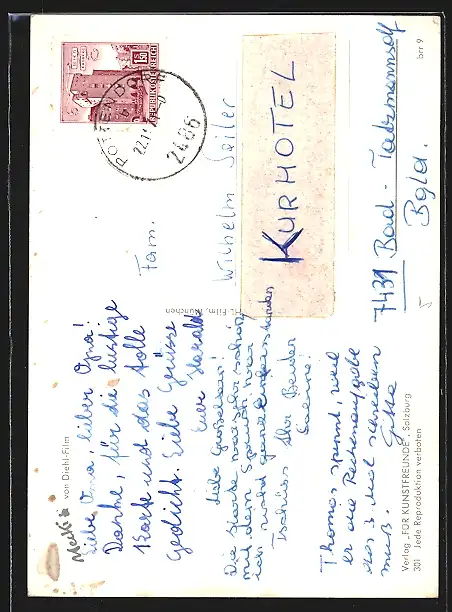 Mecki
von Diehl-Film
Liebe Oma, lieber Opa!
Danke, für die lustige
Karte und das tolle
Gedicht. Liebe Grüsse
Euer Harald
Liebe Großeltern!
Die Karte war sehr schön
mit dem Spruch war
ich nicht ganz einverstanden
Tschüss Ihr Beiden
Thomas spinnt, weil
er die Rechenaufgabe
das 3. Mal schreiben
muß.
Verlag „FÜR KUNSTFREUNDE", Salzburg
301 Jede Reproduktion verboten
-Film, München
POTTENDORF
22.11
2486
S 1.50
REPUBLIK ÖSTERREICH
Fam.
Wilhelm Seiler
KURHOTEL
7431 Bad-Tatzmannsdf
Bgld.
brr 9